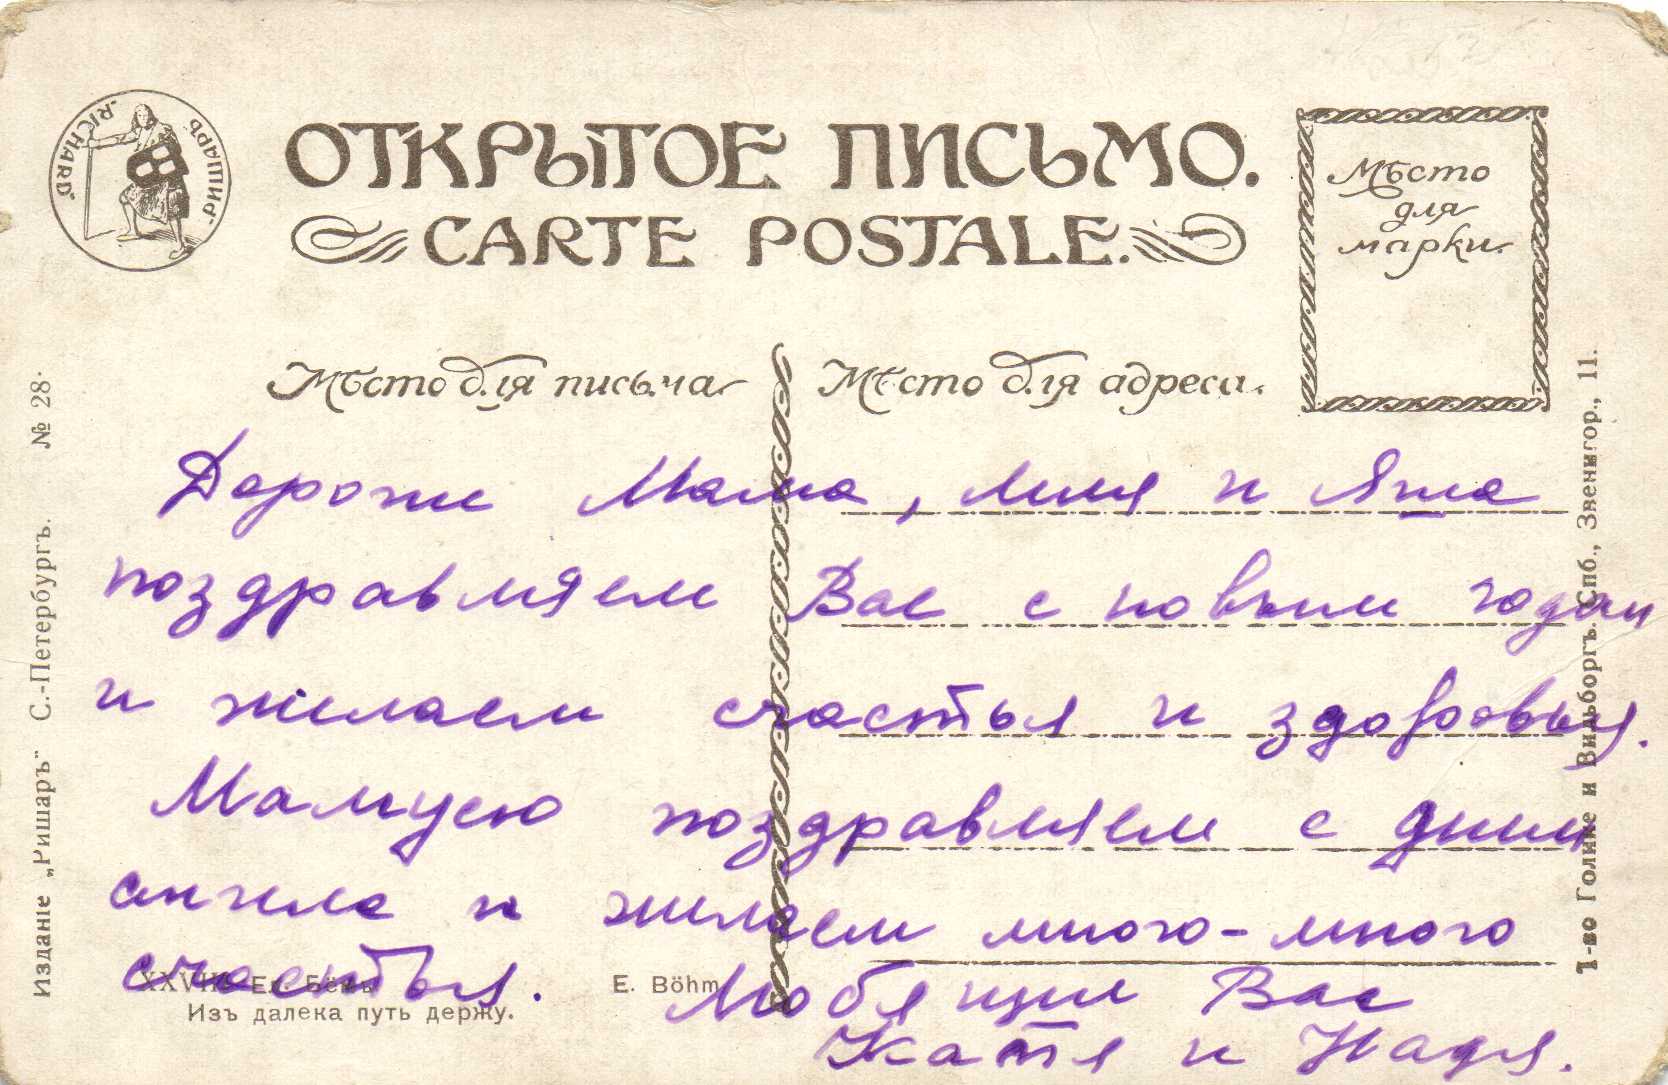 „РИШАРЪ" „RICHARD"
ОТКРЫТОЕ ПИСЬМО.
CARTE POSTALE.
Мѣсто
для
марки.
Мѣсто для письма
Мѣсто для адреса.
Дорогие Мама, Миля и Яша
поздравляем Вас с новым годом
и желаем счастья и здоровья.
Мамусю поздравляем с днем
ангела и желаем много-много
счастья.
Любящие Вас
Катя и Надя.
XXVIII. Ел. Бёмъ E. Böhm
Изъ далека путь держу.
Издание „Ришаръ" С.-Петербургъ. № 28.
Т-во Голике и Вильборгъ. Спб., Звенигор., 11.